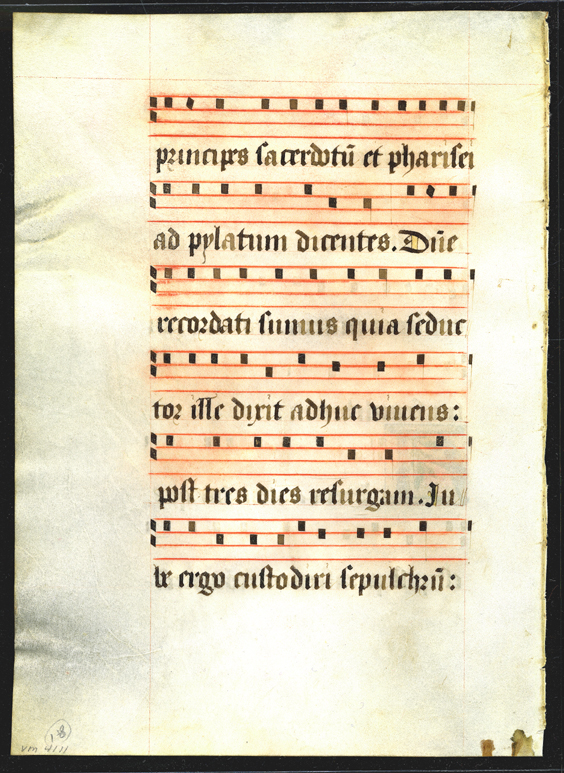 principes sacerdotū et pharisei
ad pylatum dicentes. Dñe
recordati sumus quia seduc
tor ille dixit adhuc viuens:
post tres dies resurgam. Ju
be ergo custodiri sepulchrū:
18
VM 4131